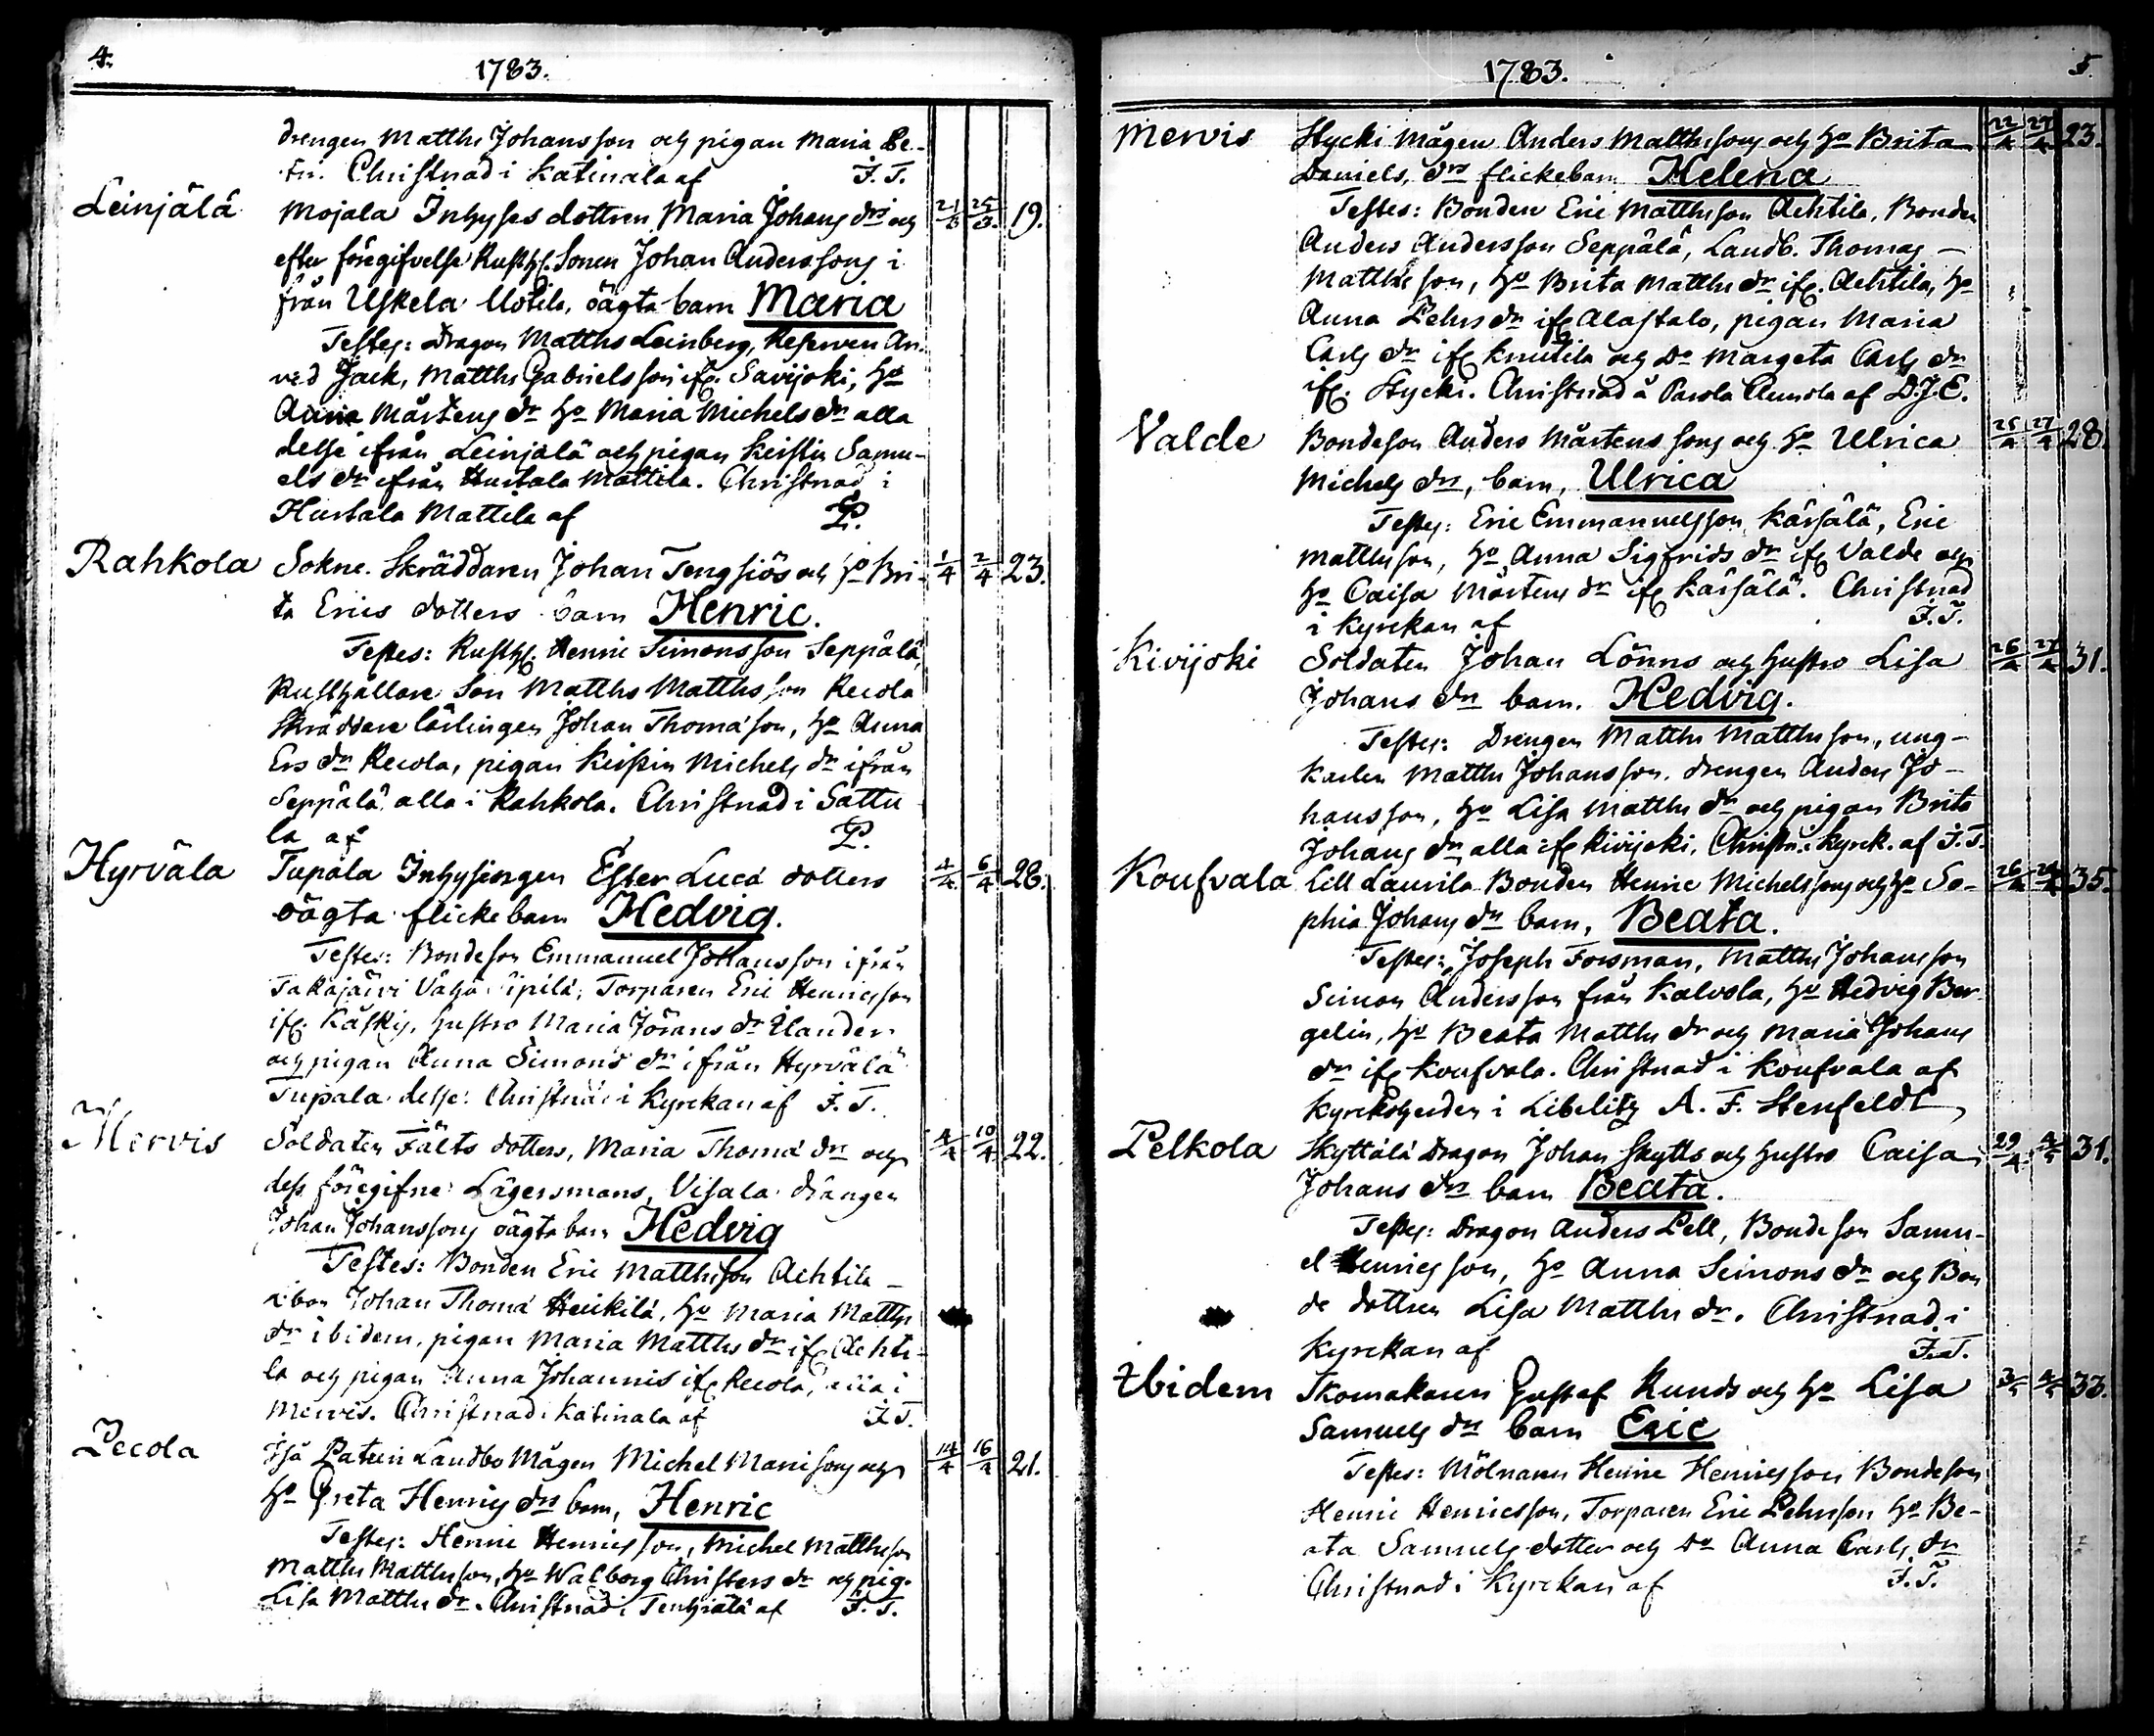 4.
1783.
drengen Matths Johansson och pigan Maria Be-
Christnad i Katinala af J. T.
Leinjälä Mojala Inhyses dottren Maria Johans drs och 21/3 25/3. 19.
efter föregifvelse Rusth. Sonen Johan Anderssons i
från Uskela Uotila, oägta barn Maria
Testes: Dragon Matths Leinberg, Reserven Ar-
ved Jack, Matths Gabrielsson ifr. Savijoki, ho
Anna Mårtens dr ho Maria Michels dr alla
desse ifrån Leinjälä och pigan Keistin Samu-
els dr ifrån Hurtala Mattila. Christnad i
Hurtala Mattila af P.
Rahkola Sokne. Skräddaren Johan Tengsiös och ho Bri- 1/4 2/4 23.
ta Erics dotters barn Henric.
Testes: Rusth. Henric Simonsson Seppälä,
Rusthållare Son Matths Matthsson Recola
Skräddare lärlingen Johan Thomasson, ho Anna
Ers dr Recola, pigan Keistin Michels dr ifrån
Seppälä alla i Rahkola. Christnad i Sattu
la af P.
Hyrväla Tupala Inhysingen Ester Lucá dotters 4/4 6/4 28.
oägta flicke barn Hedvig.
Testes: Bondeson Emmanuel Johansson ifrån
Takajärvi Vähä Sipilä, Torparen Eric Henricsson
ifr. Käskis, hustro Maria Jörans dr Ilander
och pigan Anna Simons dr ifrån Hyrvälä
Tupala desse. Christnad i Kyrckan af J. T.
Mervis Soldaten Fälts dotters, Maria Thomá dr och 4/4 10/4 22.
dess föregifne Lägersmans, Visala drängen
Johan Johanssons oägta barn Hedvig
Testes: Bonden Eric Matthsson Aehtila
Johan Thomá Heikilä, ho Maria Matths
dr ibidem, pigan Maria Matths dr ifr Aehti-
la och pigan Anna Johannis ifr Recola, i
Mervis. Christnad i Katinala af J. T.
Pecola Isä Landbo Mågen Michel Manisons och 14/4 16/4 21.
ho Greta Henrics drs barn, Henric
Testes: Henric Henricsson, Michel Matthsson
Matths Matthsson, ho Walborg Christers dr och pig.
Lisa Matths dr. Christnad i af J. T.
1783. 5.
Mervis Stycki Mågen Anders Matthssons och ho Brita 22/4 27/4 23.
Daniels, drs flickebarn Helena
Testes: Bonden Eric Matthsson Aehtila, Bonden
Anders Andersson Seppälä, Landb. Thomas
Matthsson, ho Brita Matths dr ifr. Aehtila, ho
Anna Pehrs dr ifr Alastalo, pigan Maria
Carls dr ifr Knutila och Do Margeta Carls dr
ifr. Stycki. Christnad å Parola Annola af D.J.E.
Valde Bondeson Anders Mårtenssons och ho Ulrica 25/4 27/4 28.
Michels drs, barn, Ulrica
Testes: Eric Emmanuelsson Kärsälä, Eric
Matthsson, ho Anna Sigfrids dr ifr Valde och
ho Caisa Mårtens dr ifr Kärsälä. Christnad
i Kyrckan af J. T.
Kivijoki Soldaten Johan Lönns och hustro Lisa 26/4 27/4 31.
Johans drs barn. Hedvig.
Testes: Drengen Matths Matthsson, ung-
karlen Matths Johansson, drengen Anders Jo-
hansson, ho Lisa Matths dr och pigan Brita
Johans dr alla ifr Kivijoki, Christn. i Kyrck. af J. T.
Koufvala Lill Laurila Bonden Henric Michelssons och ho So- 26/4 35.
phia Johans drs barn, Beata.
Testes: Joseph Forsman, Matths Johansson
Simon Andersson från Kalvola, ho Hedvig Ber-
gelin, ho Beata Matths dr och Maria Johans
dr ifr Koufvala. Christnad i Koufvala af
Kyrckoherden i Libelitz A. F. Stenfeldt
Pelkola Skyttälä Dragon Johan Skytts och hustro Caisa 29/4. 4/5 31.
Johans drs barn Beata.
Testes: Dragon Anders Pell, Bondeson Samu-
el Henricsson, ho Anna Simons dr och Bon
de dottren Lisa Matths dr. Christnad i
Kyrckan af J. T.
Ibidem Skomakaren Gustaf Runds och ho Lisa 3/5 4/5 33.
Samuels drs barn Eric
Testes: Mölnaren Henric Henricsson Bondeson
Henric Henricsson, Torparen Eric Pehrsson ho Be-
ata Samuels dotter och Do Anna Carls dr
Christnad i Kyrckan af J. T.